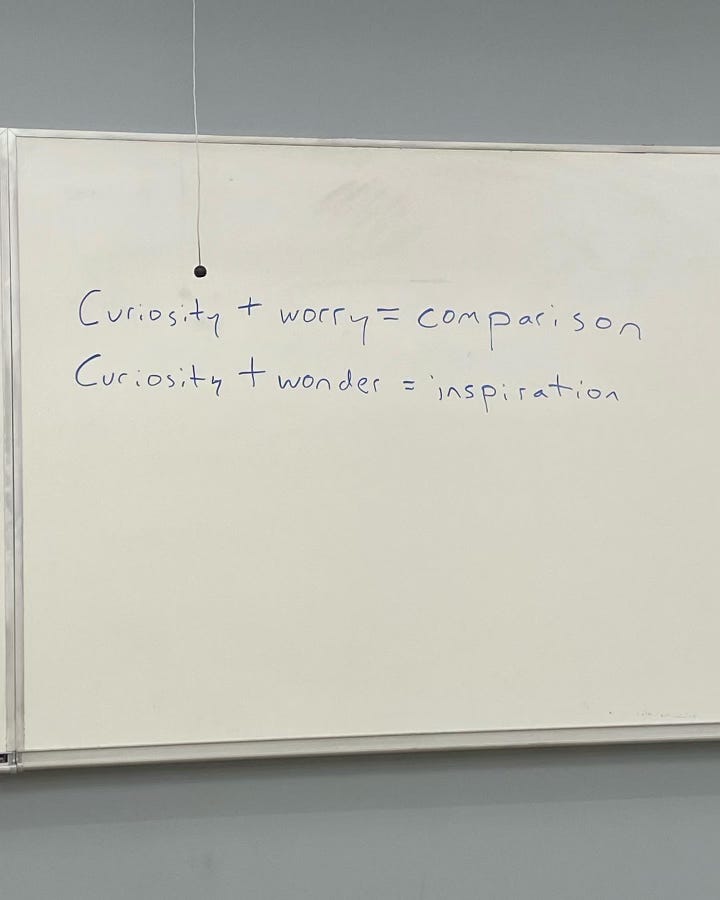 Curiosity + worry = comparison
Curiosity + wonder = inspiration